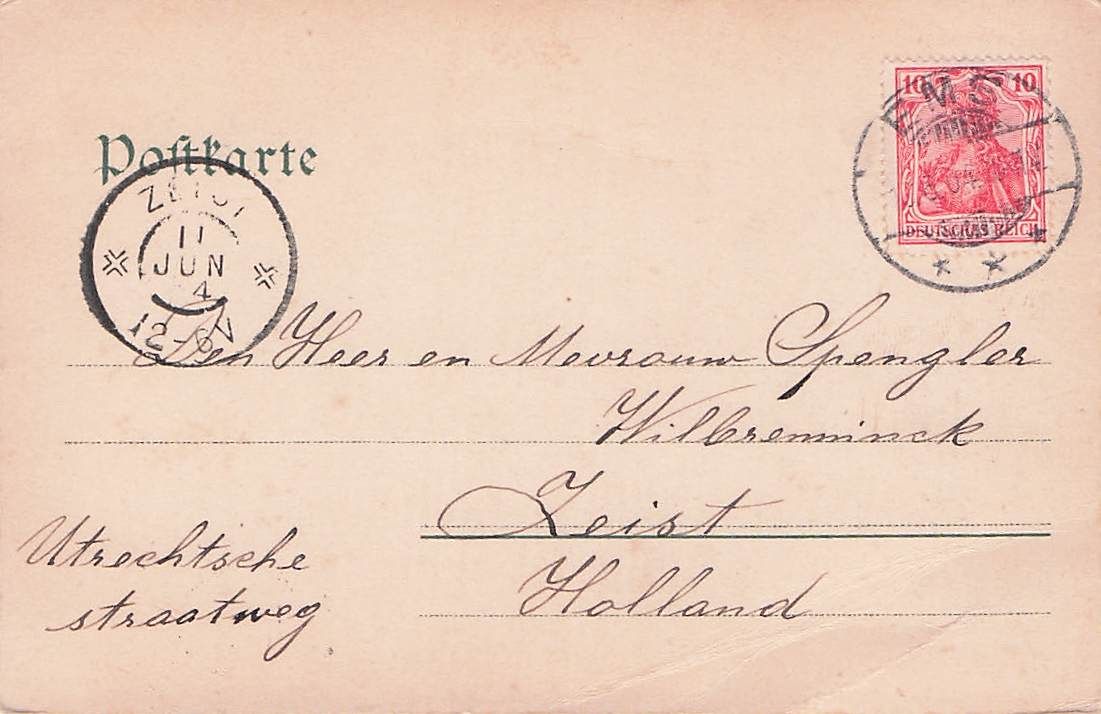 Postkarte
10 10
EMS
DEUTSCHES REICH
ZEIST
11
JUN
4
12-6V
Den Heer en Mevrouw Spengler
Wilbrenninck
Zeist
Holland
Utrechtsche
straatweg